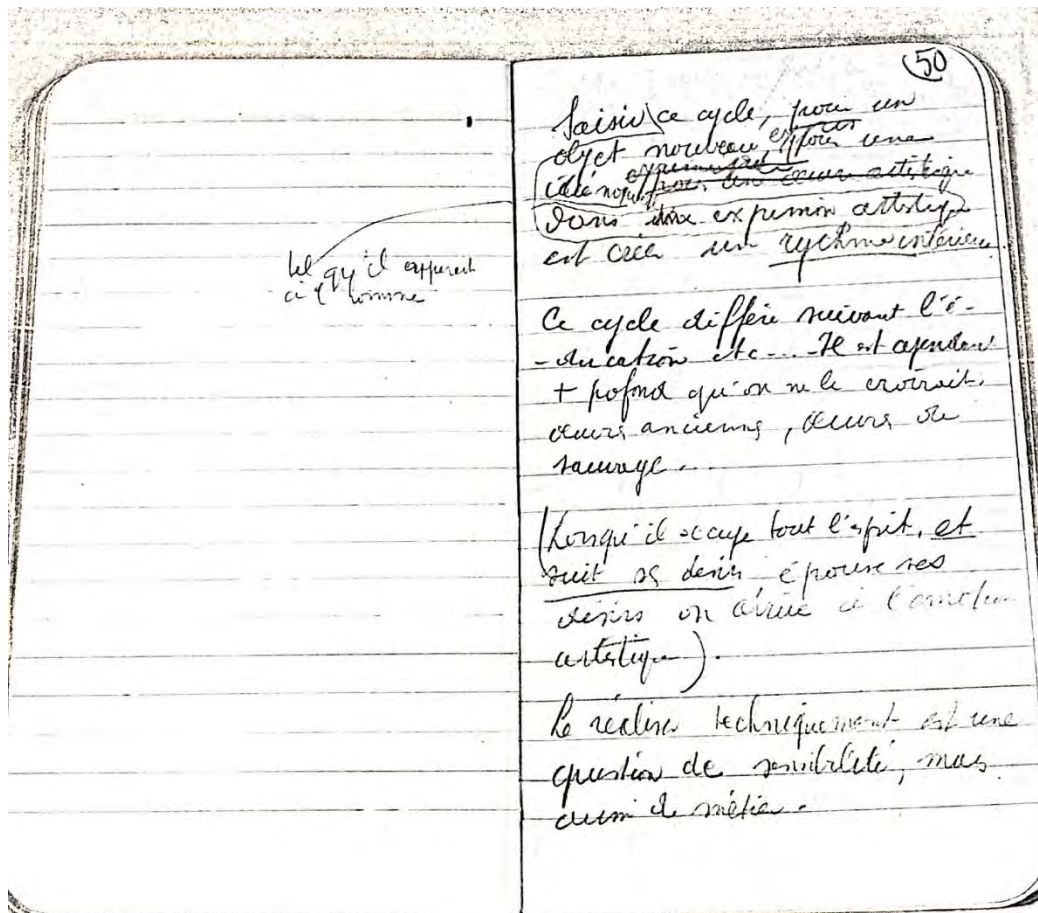 tel qu'il apparait
à l'homme
50
Saisir ce cycle, pour un
objet nouveau, et pour une
idée nouv. exprimant pour une œuvre artistique
dans une expression artistique
est créer un rythme intérieur.
Ce cycle diffère suivant l'é-
-ducation etc.... Il est cependant
+ profond qu'on ne le croirait.
œuvres anciennes, œuvres de
sauvage...
(Lorsqu'il occupe tout l'esprit, et
suit ses désirs épouse ses
désirs on arrive à l'émotion
artistique).
Le réaliser techniquement est une
question de sensibilité, mais
aussi de métier.